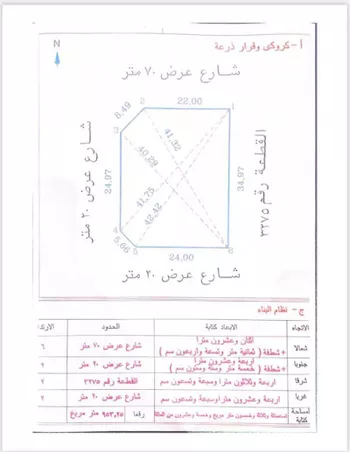 أ - كروكي وقرار ذرعة
N
شارع عرض ٧٠ متر
22.00
8.49
2
1
3
41.32
40.29
شارع عرض ٢٠ متر
24.97
34.97
القطعة رقم ٣٢٧٥
41.75
42.42
4
5.66
5
6
24.00
شارع عرض ٢٠ متر
ج - نظام البناء
الاتجاه
الابعاد كتابة
الحدود
شمالا
أثنان وعشرون مترا
+ شطفة ( ثمانية متر وتسعة وأربعون سم )
شارع عرض ٧٠ متر
٦
جنوبا
اربعة وعشرون مترا
+ شطفة ( خمسة متر وستة وستون سم )
شارع عرض ٢٠ متر
٢
شرقا
اربعة وثلاثون مترا وسبعة وتسعون سم
القطعة رقم ٣٢٧٥
٢
غربا
اربعة وعشرون مترا وسبعة وتسعون سم
شارع عرض ٢٠ متر
٢
المساحة كتابة
تسعمائة وثلاثة وخمسون متر مربع وخمسة وعشرون من المائة
رقما
٩٥٣,٢٥ متر مربع